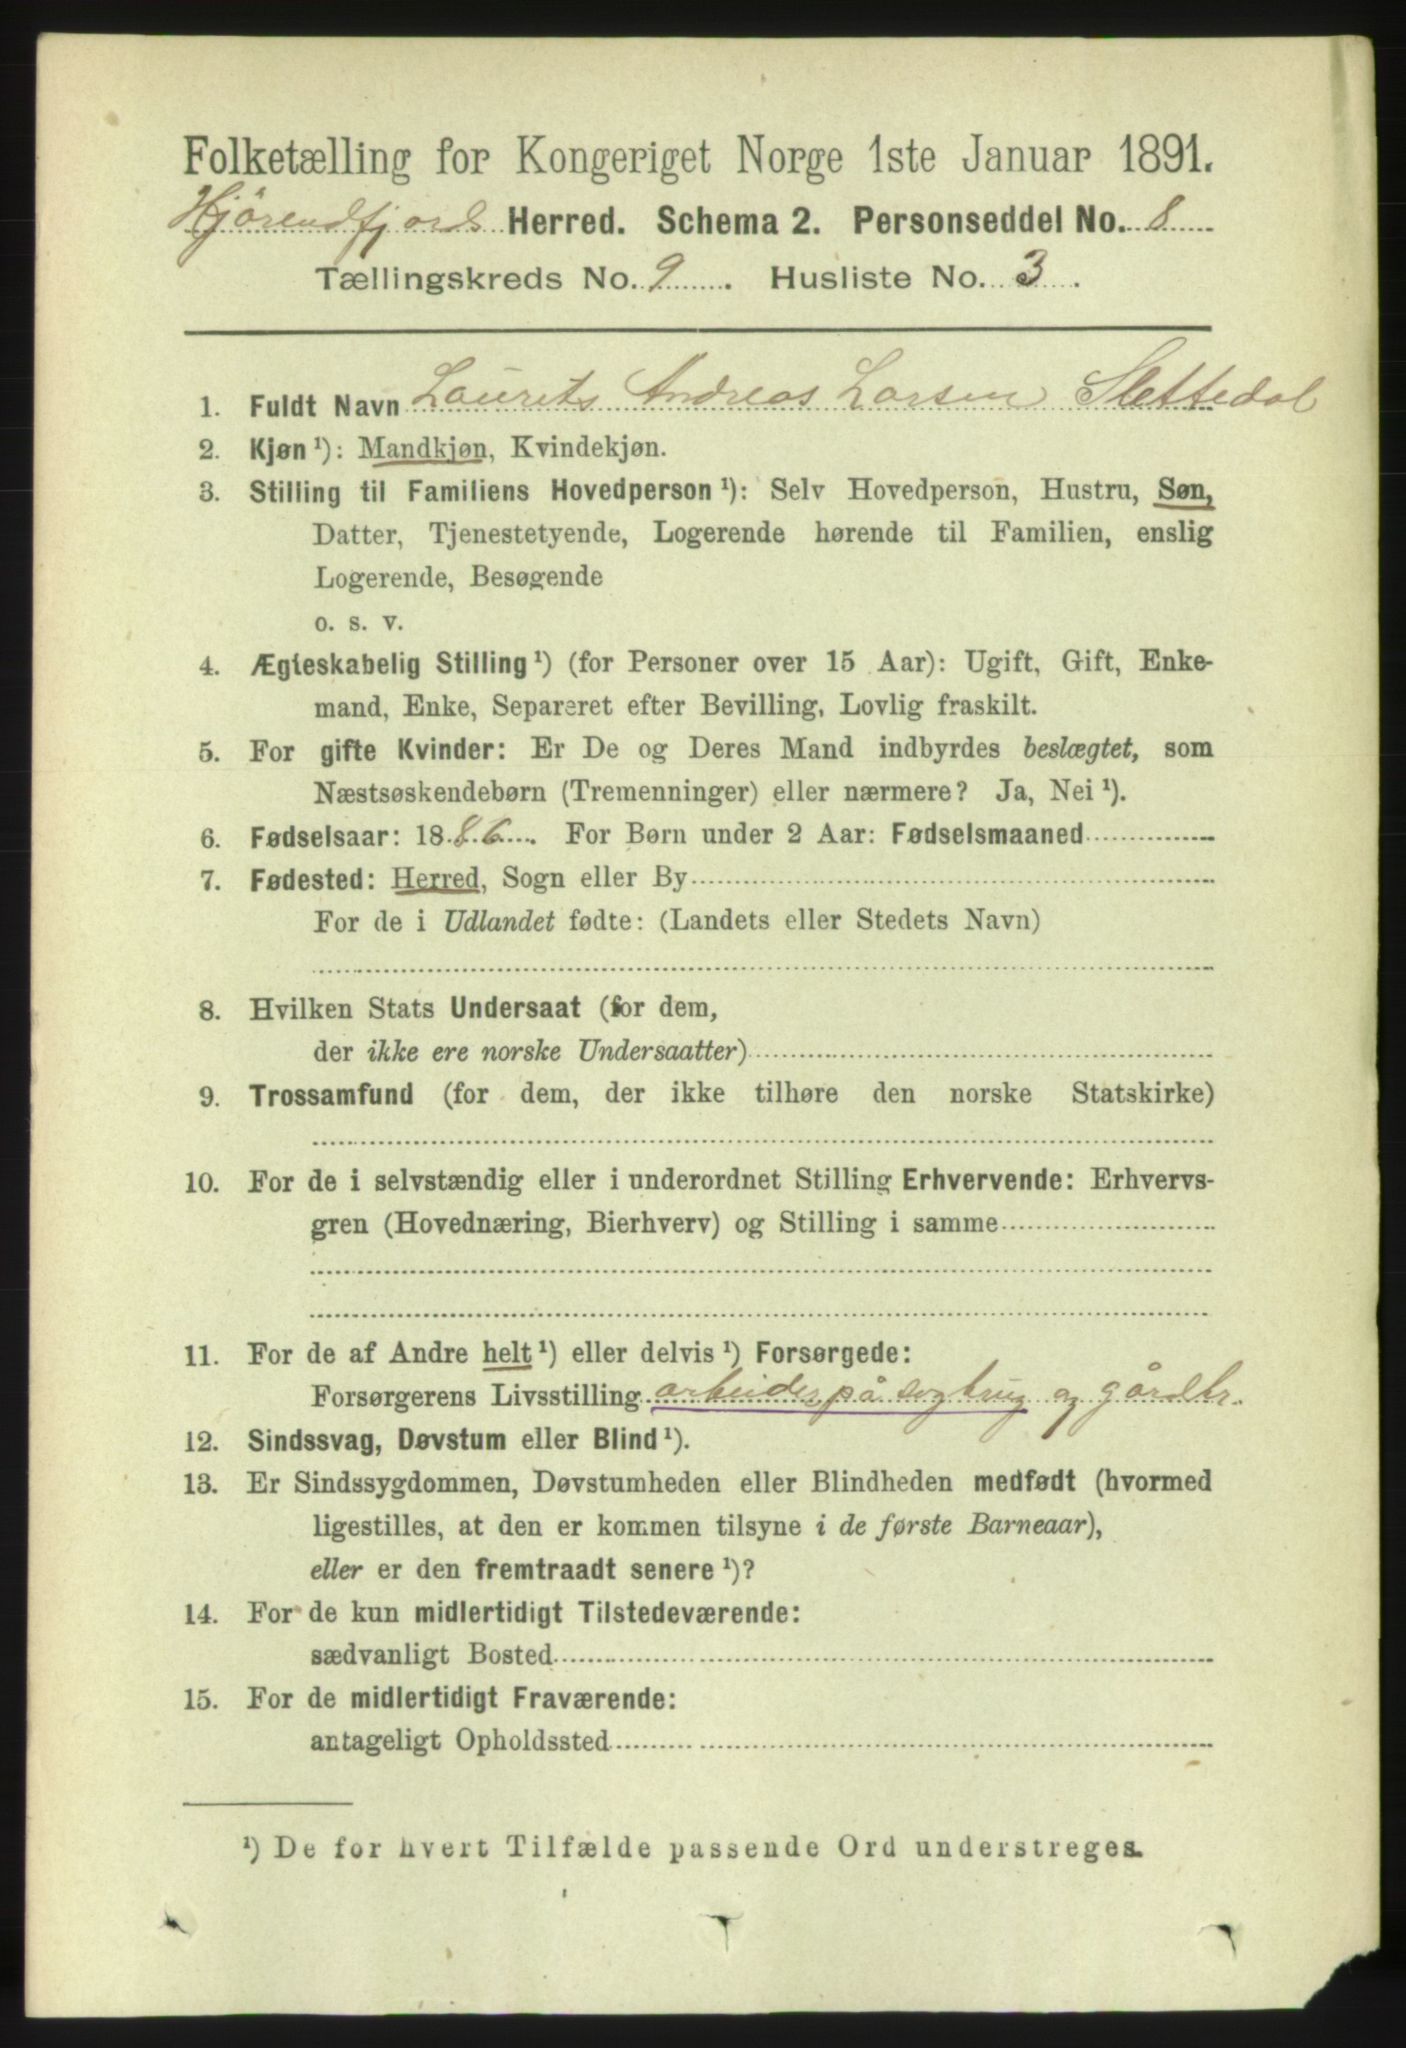 Folketælling for Kongeriget Norge 1ste Januar 1891.
Hjörendfjords Herred. Schema 2. Personseddel No. 8
Tællingskreds No. 9. Husliste No. 3.
1. Fuldt Navn Laurits Andreas Larsen Slettedal
2. Kjøn ¹): Mandkjøn, Kvindekjøn.
3. Stilling til Familiens Hovedperson ¹): Selv Hovedperson, Hustru, Søn,
Datter, Tjenestetyende, Logerende hørende til Familien, enslig
Logerende, Besøgende
o. s. v.
4. Ægteskabelig Stilling ¹) (for Personer over 15 Aar): Ugift, Gift, Enke-
mand, Enke, Separeret efter Bevilling, Lovlig fraskilt.
5. For gifte Kvinder: Er De og Deres Mand indbyrdes beslægtet, som
Næstsøskendebørn (Tremenninger) eller nærmere? Ja, Nei ¹).
6. Fødselsaar: 1886. For Børn under 2 Aar: Fødselsmaaned
7. Fødested: Herred, Sogn eller By
For de i Udlandet fødte: (Landets eller Stedets Navn)
8. Hvilken Stats Undersaat (for dem,
der ikke ere norske Undersaatter)
9. Trossamfund (for dem, der ikke tilhøre den norske Statskirke)
10. For de i selvstændig eller i underordnet Stilling Erhvervende: Erhvervs-
gren (Hovednæring, Bierhverv) og Stilling i samme
11. For de af Andre helt ¹) eller delvis ¹) Forsørgede:
Forsørgerens Livsstilling arbeider på og gårdbr.
12. Sindssvag, Døvstum eller Blind ¹).
13. Er Sindssygdommen, Døvstumheden eller Blindheden medfødt (hvormed
ligestilles, at den er kommen tilsyne i de første Barneaar),
eller er den fremtraadt senere ¹)?
14. For de kun midlertidigt Tilstedeværende:
sædvanligt Bosted
15. For de midlertidigt Fraværende:
antageligt Opholdssted
¹) De for hvert Tilfælde passende Ord understreges.